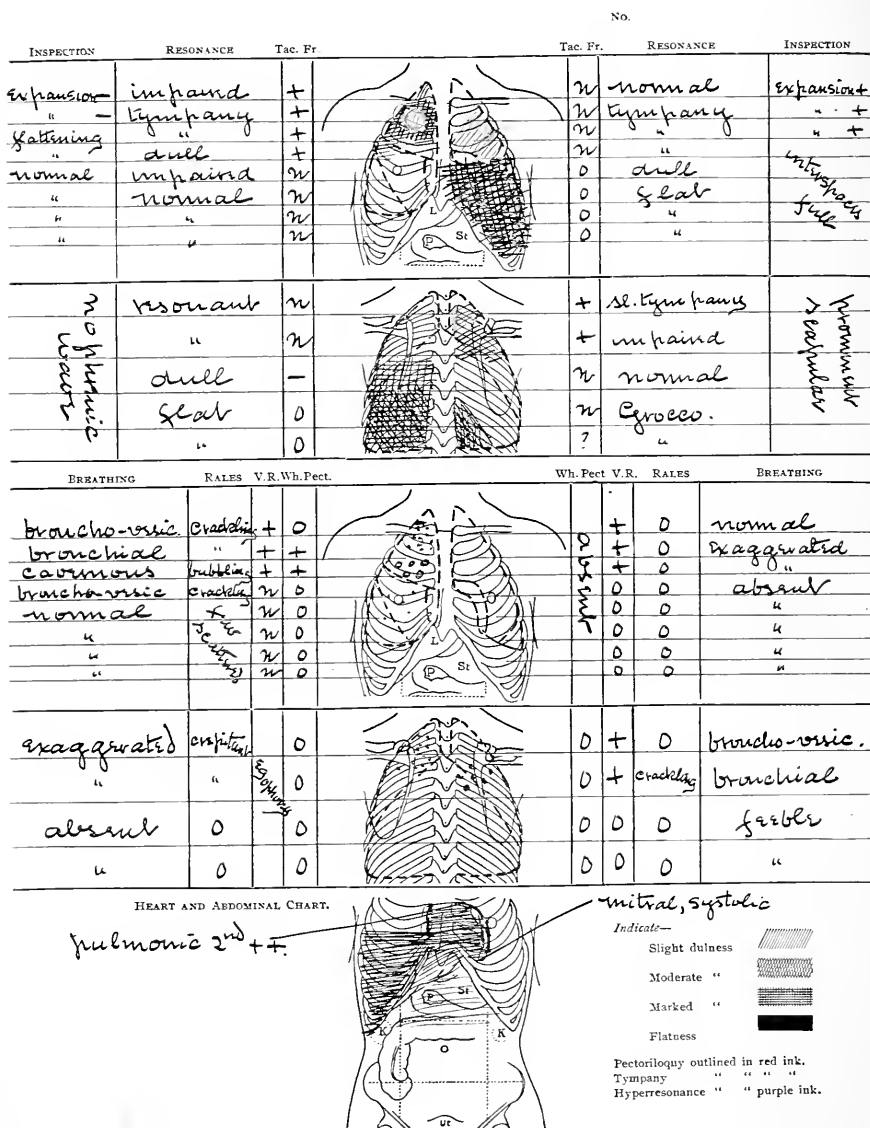 No.
INSPECTION RESONANCE Tac. Fr. Tac. Fr. RESONANCE INSPECTION
expansion – impaired + n normal expansion +
" – tympany + n tympany " +
flattening " + n " " +
" dull + n " interspaces full
normal impaired n o dull
" normal n o flat
" " n o "
" " n o "
L
P St
no phrenic wave resonant n + sl. tympany prominent scapular
" n + impaired
dull – n normal
flat o n Grocco.
" o ? "
BREATHING RALES V.R. Wh.Pect. Wh. Pect V.R. RALES BREATHING
broncho-vesic. crackling + o absent + o normal
bronchial " + + + o exaggerated
cavernous bubbling + + + o "
broncho-vesic crackling n o o o absent
normal few scattered n o o o "
" n o o o "
" n o o o "
" n o o o "
L
P St
exaggerated crepitant o o + o broncho-vesic.
" " egophony o o + crackling bronchial
absent o o o o o feeble
" o o o o o "
HEART AND ABDOMINAL CHART.
mitral, systolic
pulmonic 2nd ++.
Indicate—
Slight dulness
Moderate "
Marked "
Flatness
P St
K K
O
Ut
Pectoriloquy outlined in red ink.
Tympany " " " "
Hyperresonance " " purple ink.